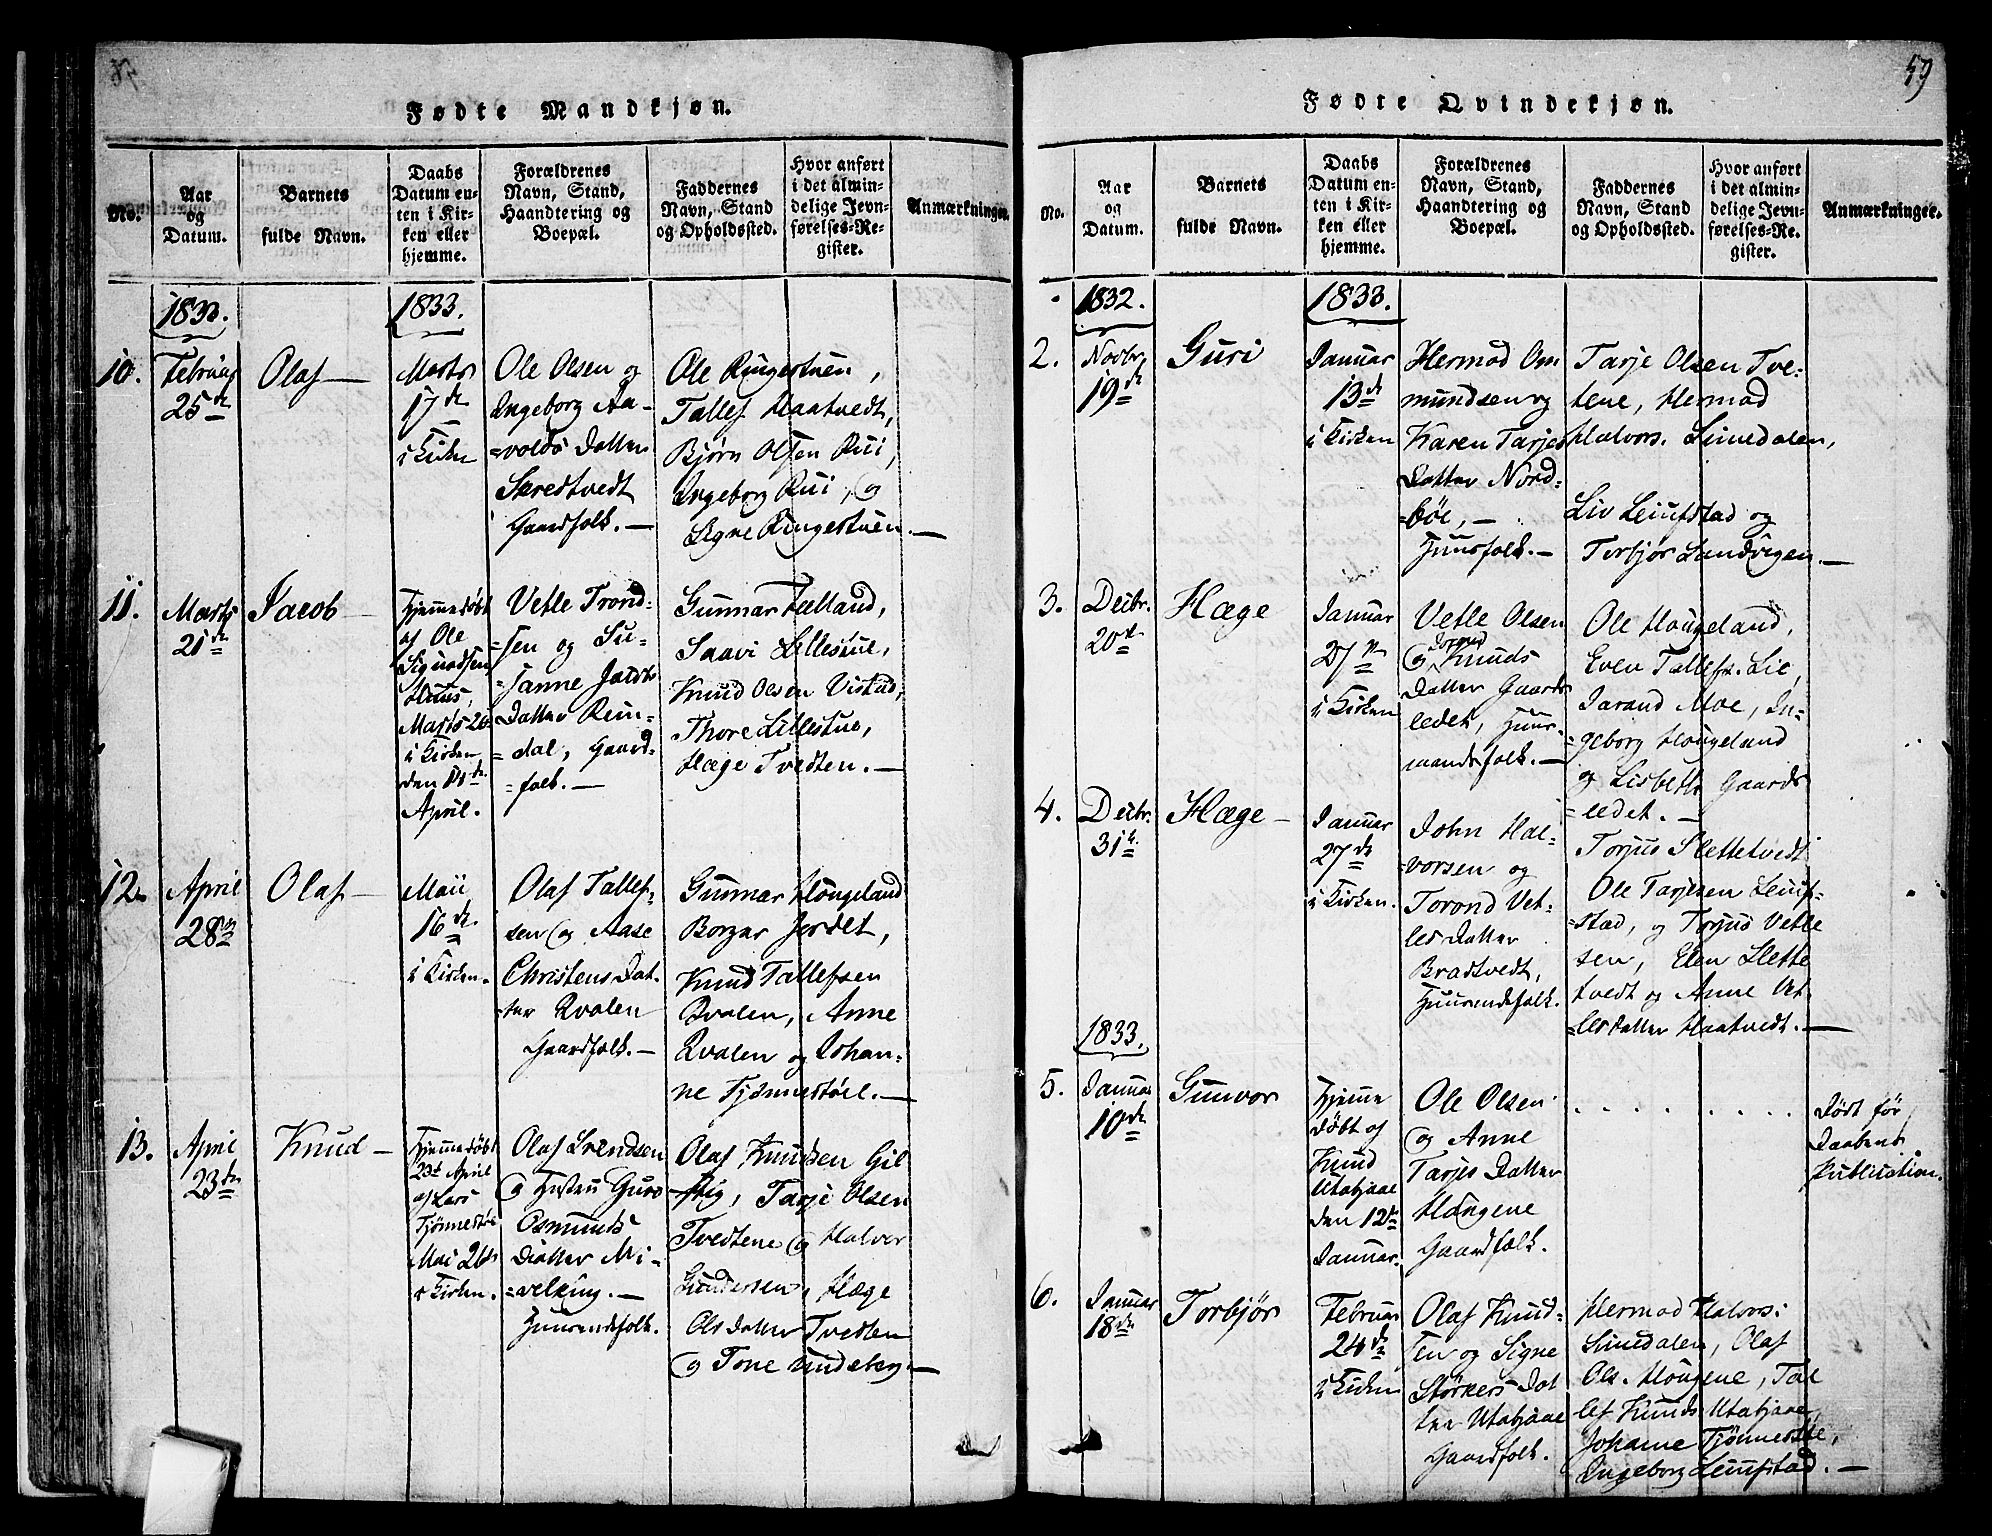 59
Fødte Mandkjøn.
No.
Aar
og
Datum.
Barnets
fulde Navn.
Daabs
Datum en-
ten i Kir-
ken eller
hjemme.
Forældrenes
Navn, Stand,
Haandtering og
Boepæl.
Faddernes
Navn, Stand
og Opholdssted.
Hvor anført
i det almin-
delige Jevn-
førelses-Re-
gister.
Anmærkninger.
1833.
1833.
10.
Februar
25de
Olaf
Marts
17de
i Kirken
Ole Olsen og
Ingeborg Aa-
=volds Datter
Skredtvedt
Gaardfolk.
Ole Ringestuen,
Tallef Haatvedt,
Bjørn Olsen Rui,
Ingeborg Rui, og
Signe Ringestuen.
11.
Marts
21de
Jacob
Hjemmedøbt
af Ole
Sigurdsen
Marts 26
i Kirken
den 14de
April.
Vetle Trond-
=sen og Su-
=sanne Jacobs
Datter Rein-
=dal, Gaard-
=folk.
Gunnar Felland,
Saavi Lillestue,
Knud Olsen Vistad,
Thore Lillestue,
Hæge Tvedten.
12.
April
28de
Olaf
Maii
16de
i Kirken.
Olaf Tallef-
sen og Aase
Christens Dat-
=ter Qvalen
Gaardfolk.
Gunnar Hougeland
Borgar Jordet,
Knud Tallefsen
Qvalen, Anne
Qvalen og Johan-
ne Tjønnestøel.
13.
April
23de
Knud
Hjemmedøbt
23de April
af Lars
Tjønnestøe
Mai 26de
i Kirken.
Olaf Svendsen
og Hustru Guro
Osmunds
Datter Mi-
=velking.
Huusmdsfolk.
Olaf Knudsen Gil
Tarje Olsen
Tvedtene og Halvor
Gundersen, Hæge
Ols Datter Tvedten
og Tone
Fødte Qvindekjøn.
No.
Aar
og
Datum.
Barnets
fulde Navn.
Daabs
Datum en-
ten i Kir-
ken eller
hjemme.
Forældrenes
Navn, Stand,
Haandtering og
Boepæl.
Faddernes
Navn, Stand
og Opholdssted.
Hvor anført
i det almin-
delige Jevn-
førelses-Re-
gister.
Anmærkninger.
1832.
1833.
2.
Novbr.
19de
Guri
Januar
13de
i Kirken
Hermod Om
mundsen og
Karen Tarjes
Datter Nord-
=bøe,
Huusfolk.
Tarje Olsen Tve-
tene, Hermod
Halvors. Simedalen,
Liv Leiufstad og
Torbjør Sandvigen.
3.
Decbr.
20de
Hæge
Januar
27de
i Kirken
Vetle Olsen
og Torond Knuds
Datter Gaards
ledet, Huus-
mandsfolk.
Ole Hougeland,
Even Tallefs. Lie,
Jarand Moe, In-
geborg Hougeland
og Lisbeth Gaards
=ledet.
4.
Decbr.
31te
Hæge
Januar
27de
i Kirken.
John Hal-
vorsen og
Torond Vet-
les Datter
Bradtvedt,
Huusmdsfolk.
Torjus Slettetvedt
Ole Tarjesen Leiuf-
=stad, og Torjus Vetle
sen, Elen Slette
tvedt og Anne Vet-
=lesdatter Haatvedt.
1833.
5.
Januar
10de
Gunvor
Hjemme
døbt af
Knud
Utabjaae
den 12te
Januar.
Ole Olsen
og Anne
Tarjes Datter
Haugene
Gaardfolk.
Død før
Daabens
Publication.
6.
Januar
18de
Torbjør
Februar
24de
i Kirken
Olaf Knud-
sen og Signe
Størkers Dat
ter Utabjaae
Gaardfolk.
Hermod Halvors:
Simedalen, Olaf
Ols. Hougene, Tal
lef Knuds. Utabjaae,
Johanne Tjønnestøe,
Ingeborg Leiufstad.